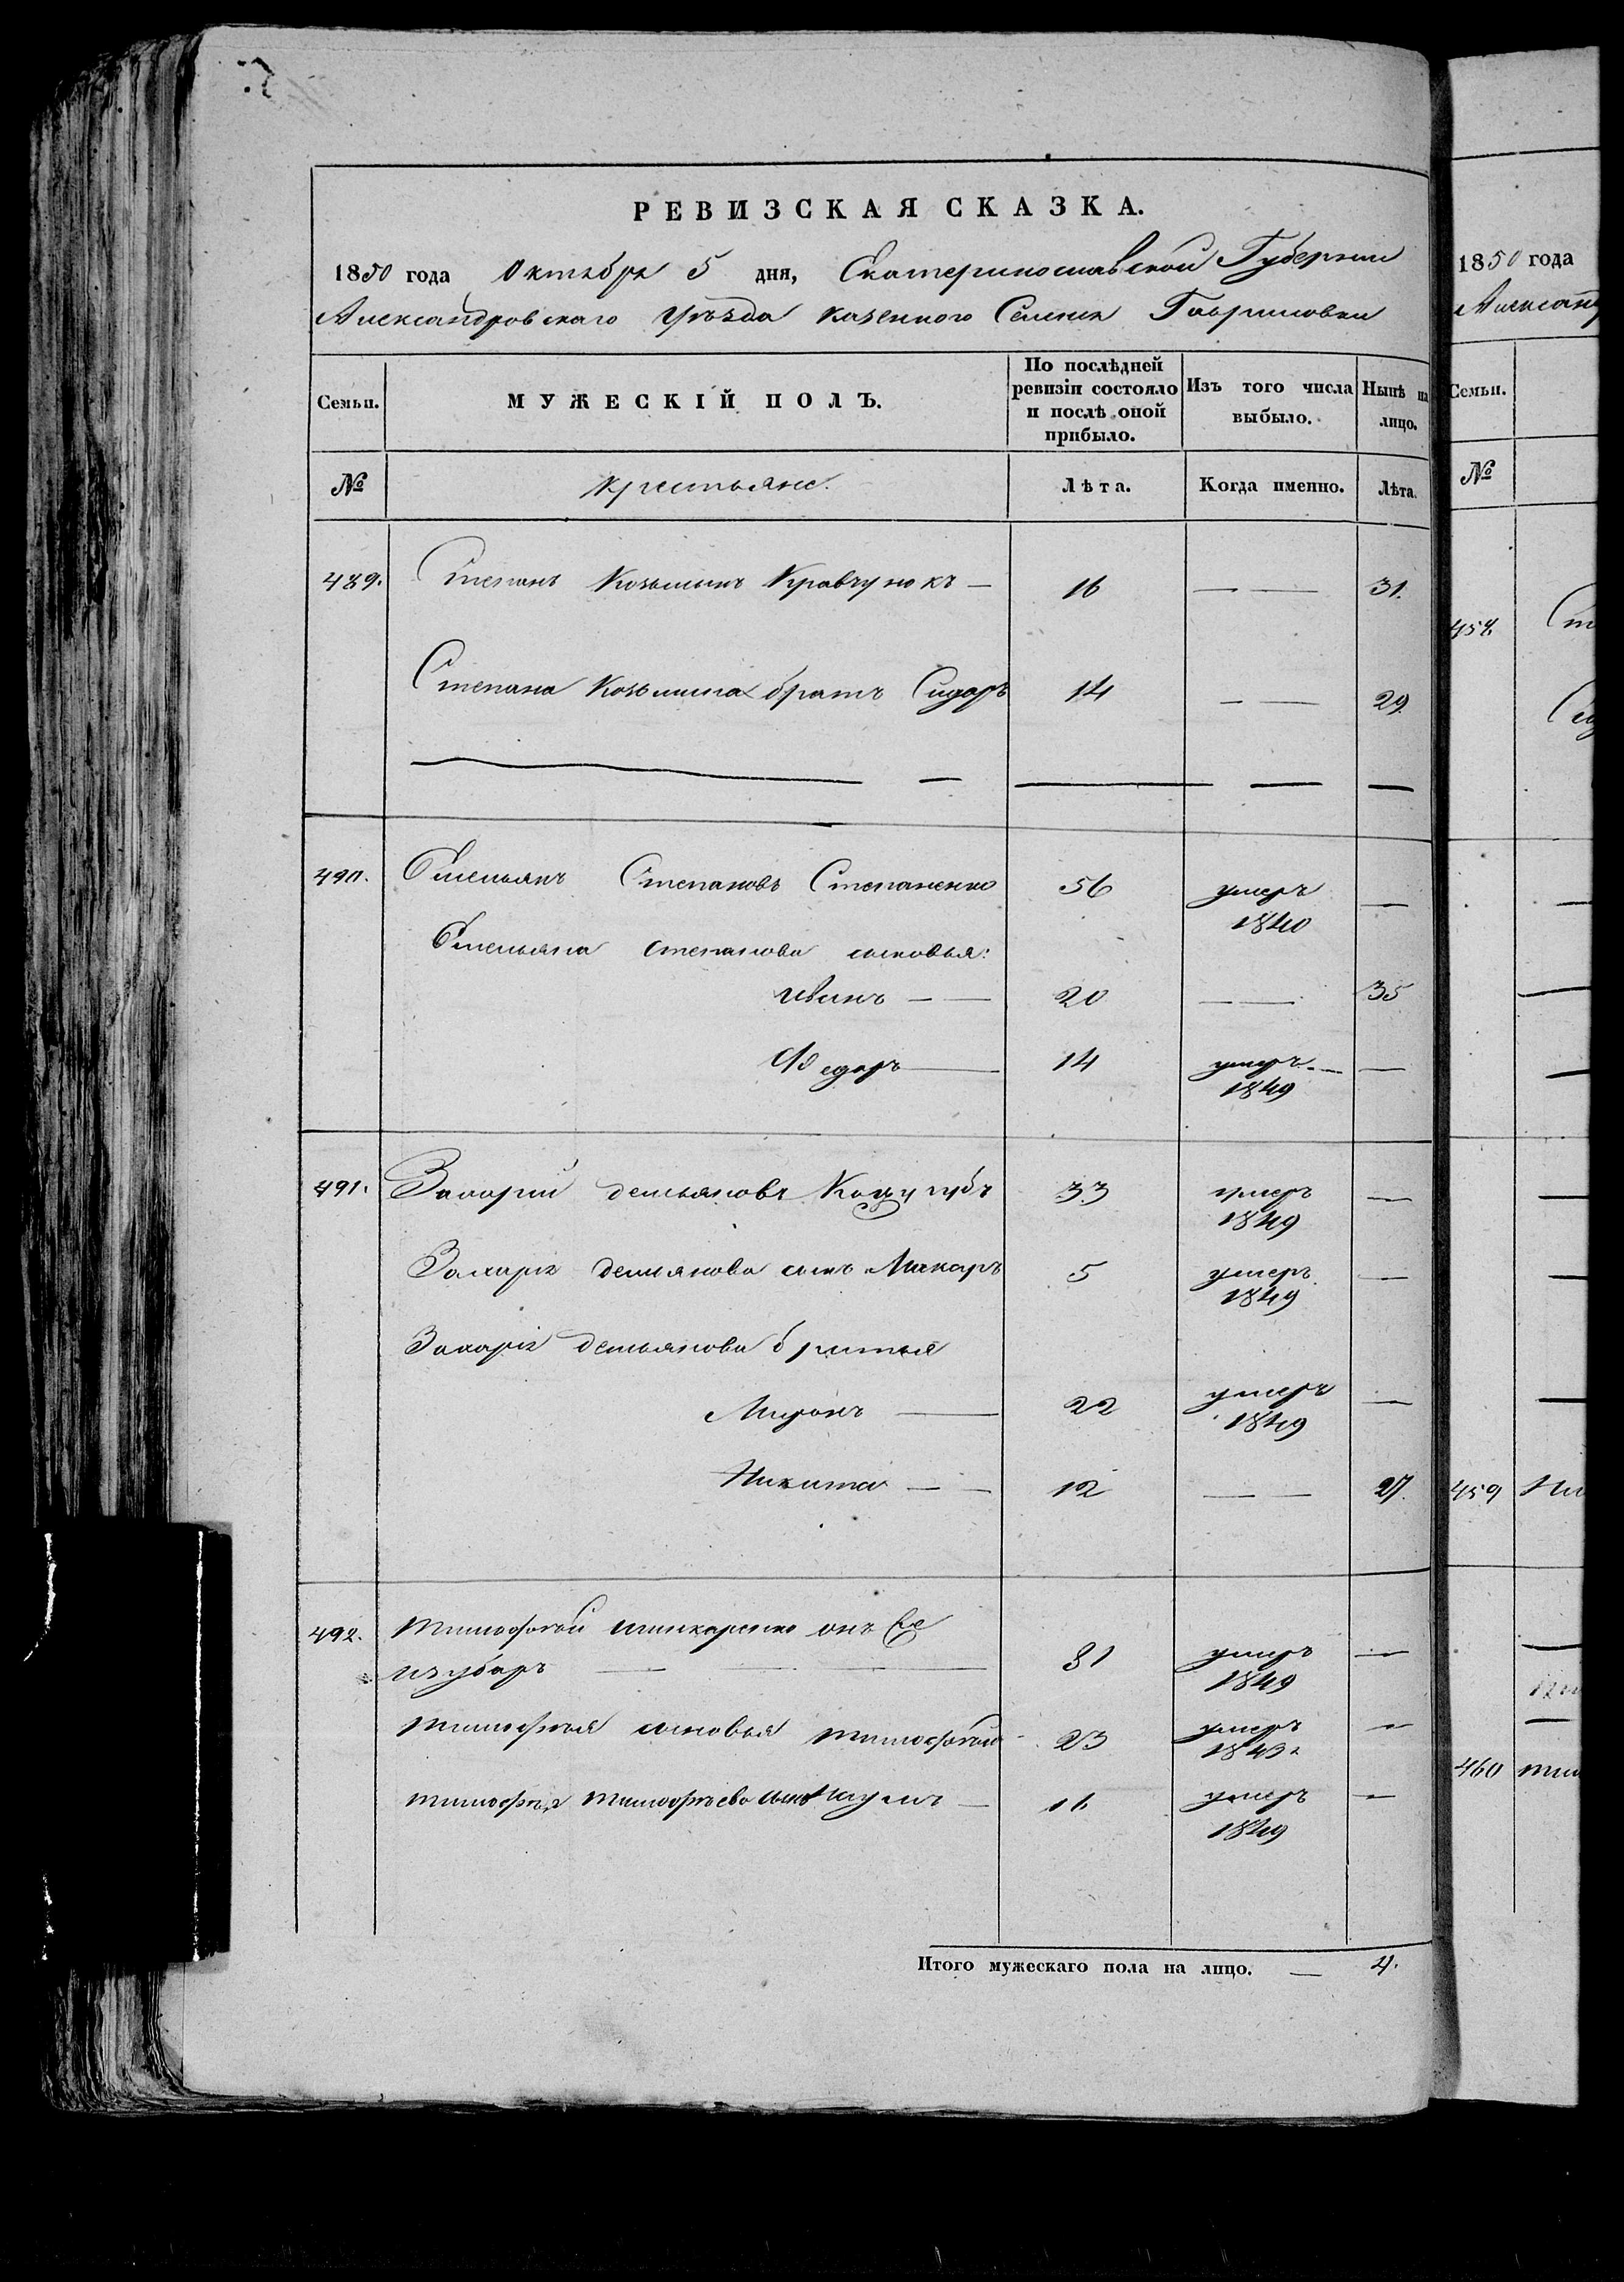 РЕВИЗСКАЯ СКАЗКА.
1850 года Октября 5 дня, Екатеринославской Губернии
Александровскаго Уѣзда казенного Селения Гавриловки
Семьи. МУЖЕСКІЙ ПОЛЪ. По послѣдней ревизіи состояло и послѣ оной прибыло. Изъ того числа выбыло. Нынѣ на лицо.
№ Крестьяне. Лѣта. Когда именно. Лѣта.
489. Степанъ Козьминъ Кравчунокъ — 16 — — 31.
Степана Козьмина братъ Сидоръ 14 — — 29.
490. Емельянъ Степановъ Степаненко 56 умеръ 1840 —
Емельяна Степанова сыновья:
Иванъ — — 20 — — 35
Федоръ — 14 умеръ 1849 —
491. Захарий Демьяновъ Козугубъ 33 умеръ 1849 —
Захария Демьянова сынъ Макаръ 5 умеръ 1849 —
Захария Демьянова братья
Миронъ — 22 умеръ 1849 —
Никита — — 12 — — 27.
492. Тимофѣй онъ же
— — — 81 умеръ 1849 —
Тимофѣя сыновья Тимофѣй 23 умеръ 1843 —
Тимофѣя Тимофѣева сынъ — 16 умеръ 1849 —
Итого мужескаго пола на лицо. — 4.
1850 года
Александр
Семьи.
№
458
459 Ни
460 Тим